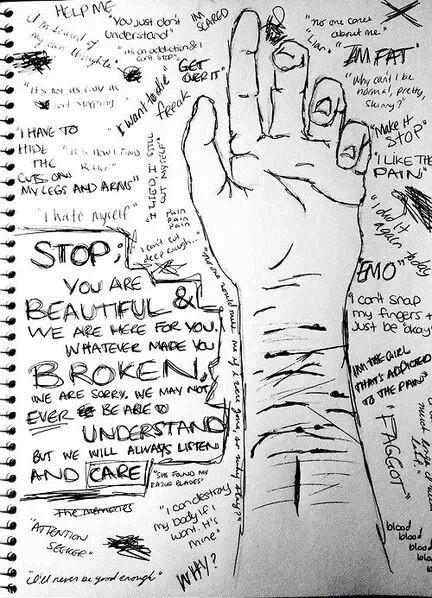 HELP ME
"You just don't
understand"
I'M
SCARED
"no one cares
about me."
I'm scared of
my own thoughts
"its an addiction & I
can't stop"
"Liar"
"I'M FAT"
"GET
OVER IT"
"Why can't I be
normal, pretty,
skinny?"
"It's not as easy as
just stopping
I want to die
freak
"Make it
STOP"
"I HAVE TO
HIDE
THE
CUTS ON
MY LEGS AND ARMS"
"It's how I find
Relief"
"I LIED I STILL
CUT MYSELF"
"I LIKE THE
PAIN"
"I hate myself"
Pain
Pain
Pain
"I did it
again" today
I can't cut
deep enough...
STOP;
YOU ARE
BEAUTIFUL &
WE ARE HERE FOR YOU.
WHATEVER MADE YOU
BROKEN,
WE ARE SORRY. WE MAY NOT
EVER BE ABLE TO
UNDERSTAND
BUT WE WILL ALWAYS LISTEN
AND CARE
EMO"
"I can't snap
my fingers +
just be okay"
IM THE GIRL
THAT'S ADDICTED
TO THE PAIN"
"FAGGOT"
"SHE FOUND MY
RAZOR BLADES"
The memories
"ATTENTION
SEEKER"
"I can destroy
my body if I
want. It's
mine"
"I'll never be good enough"
WHY?
blood
blood
blood
blood